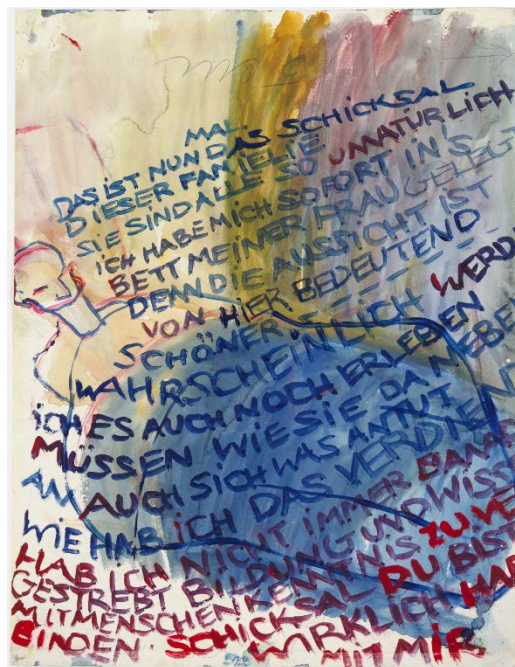 MAL.
DAS IST NUN DAS SCHICKSAL
DIESER FAMELIE
SIE SIND ALLE SO UNATÜRLICH
ICH HABE MICH SOFORT IN'S
BETT MEINER FRAU GELEGT
DENN DIE AUSSICHT IST
VON HIER BEDEUTEND
SCHÖNER – – – – – –
WAHRSCHEINLICH WERD
ICH ES AUCH NOCH ERLEBEN
MÜSSEN WIE SIE DA NEBE
AN AUCH SICH WAS ANTUT
WIE HAB ICH DAS VERDIENT
HAB ICH NICHT IMMER DANAC
GESTREBT BILDUNG UND WISS
MITMENSCHENKENNTNIS ZU VE
BINDEN. SCHICKSAL DU BIST
WIRKLICH HAR
MIT MIR.